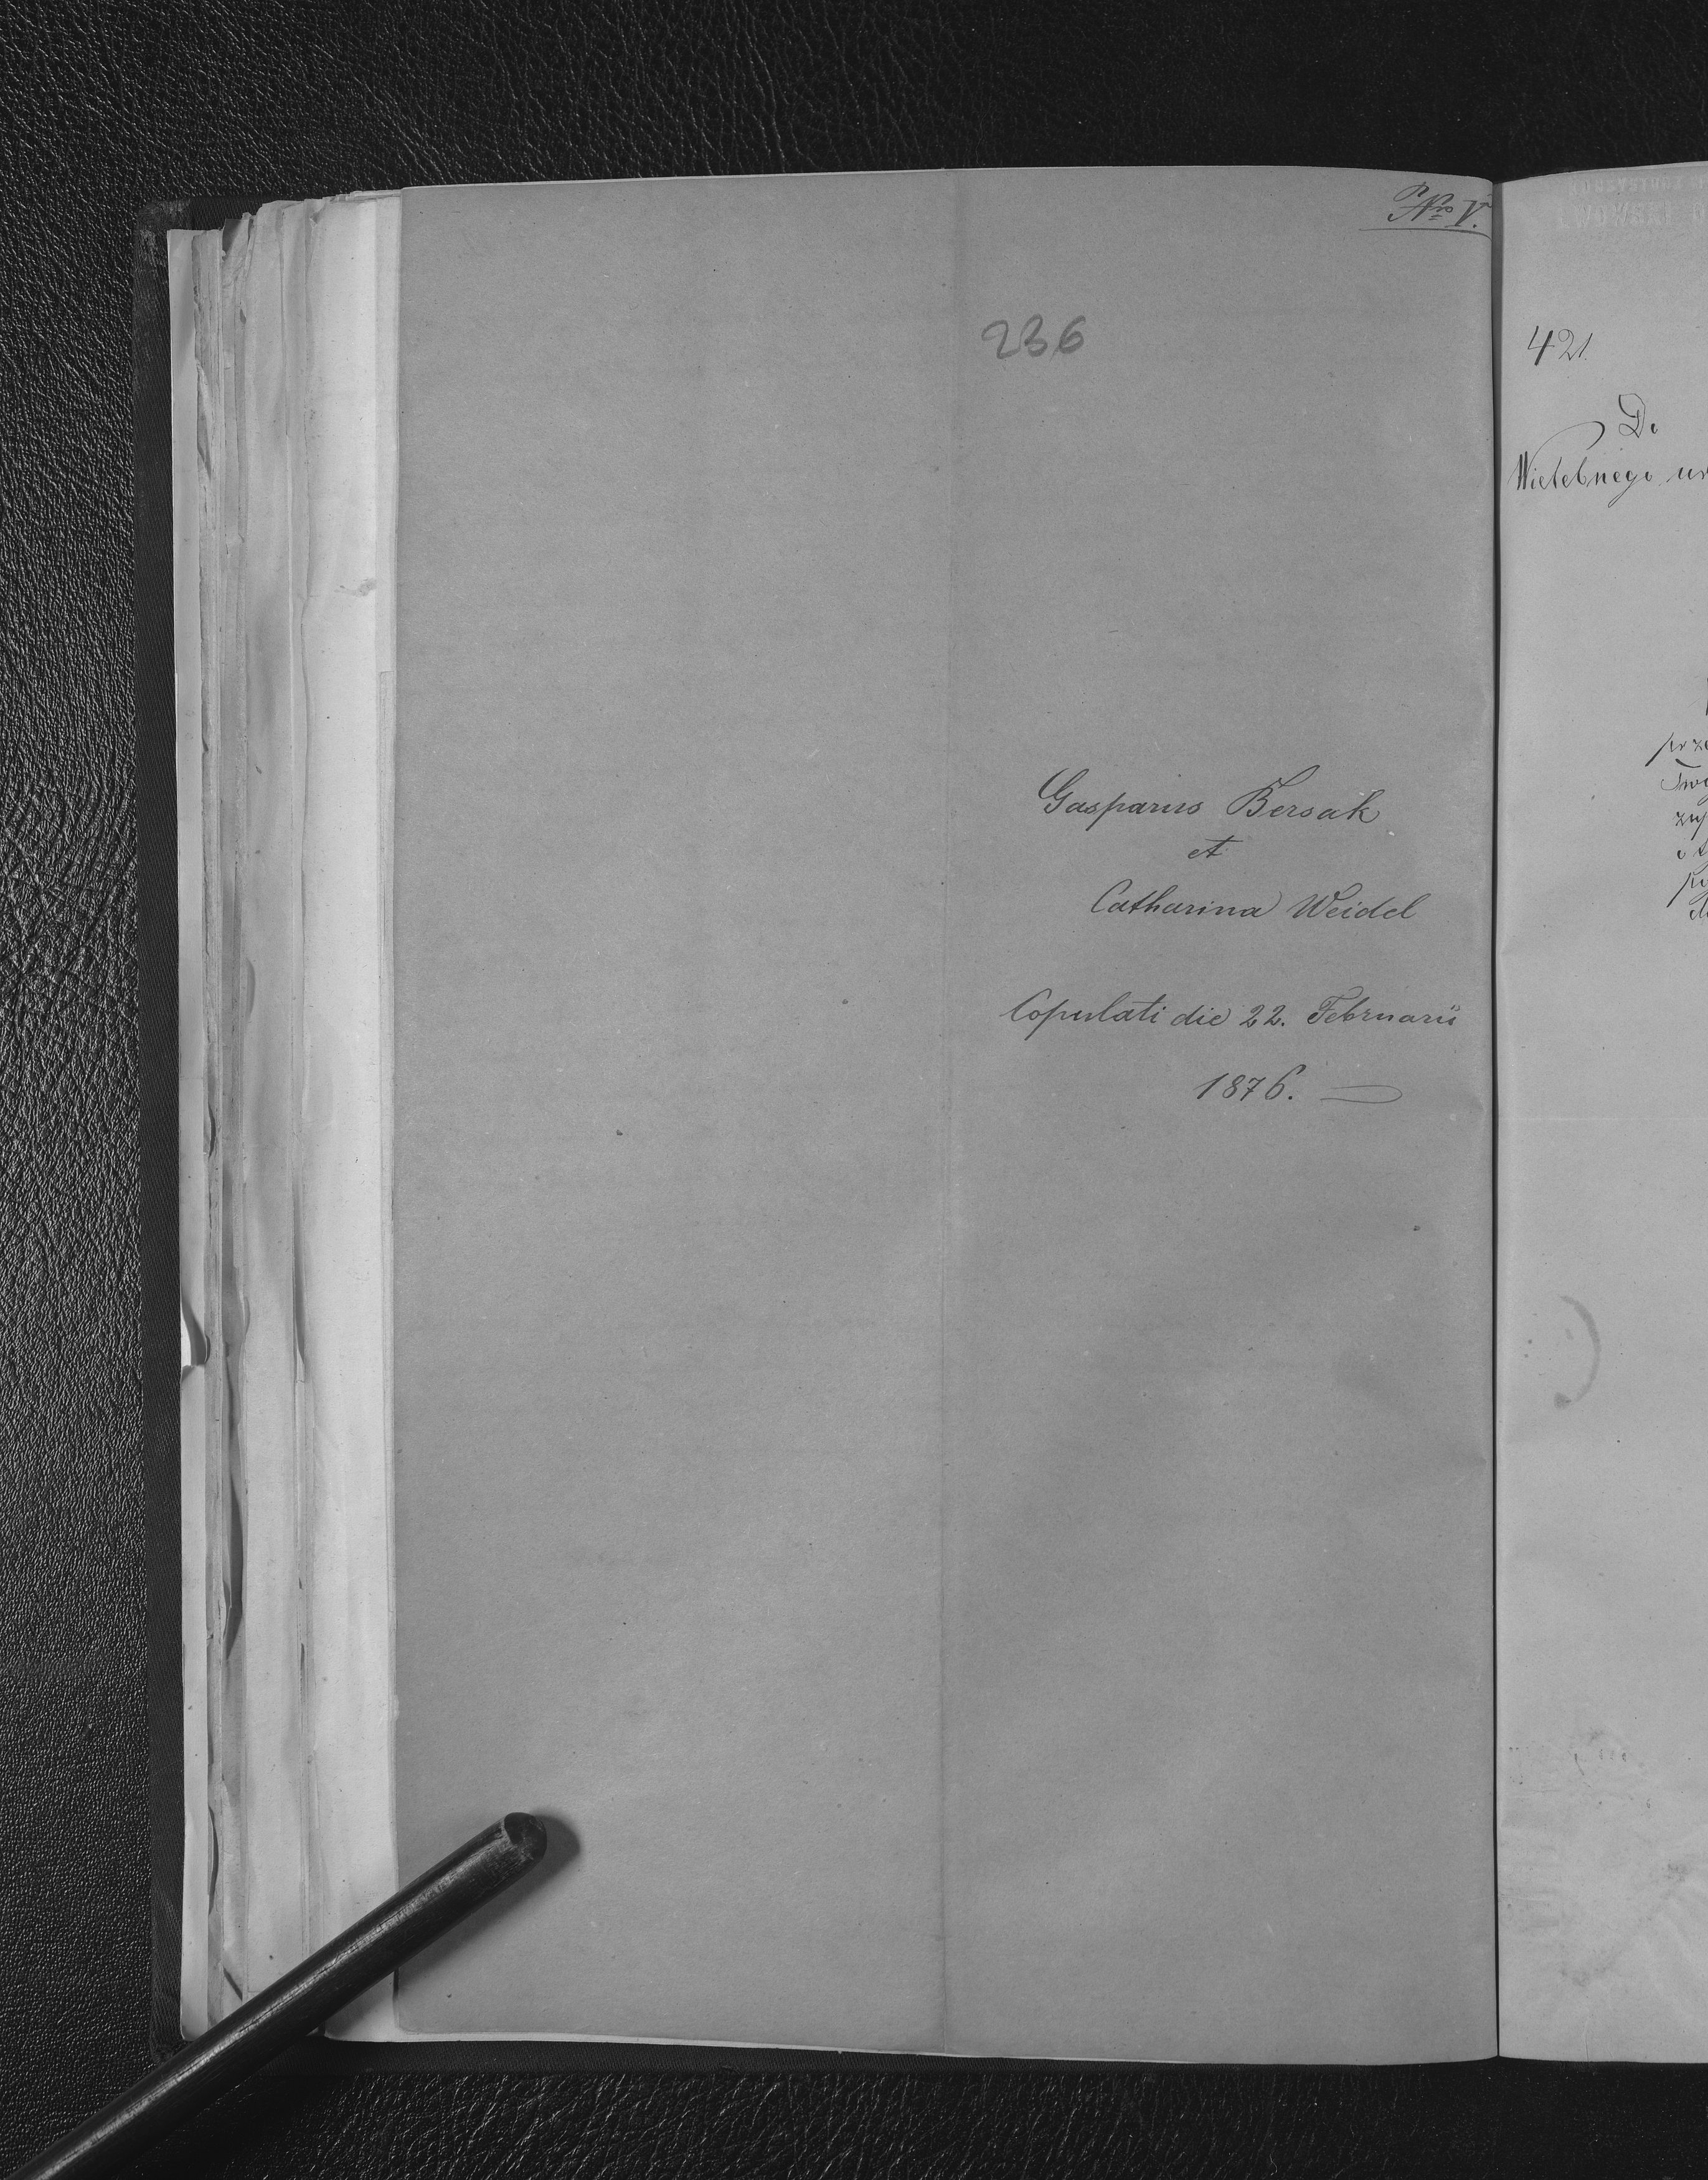 Nro V.
236
Gasparus Bersak
et
Catharina Weidel
Copulati die 22. Februarii
1876.
421.
Do
Wielebnego